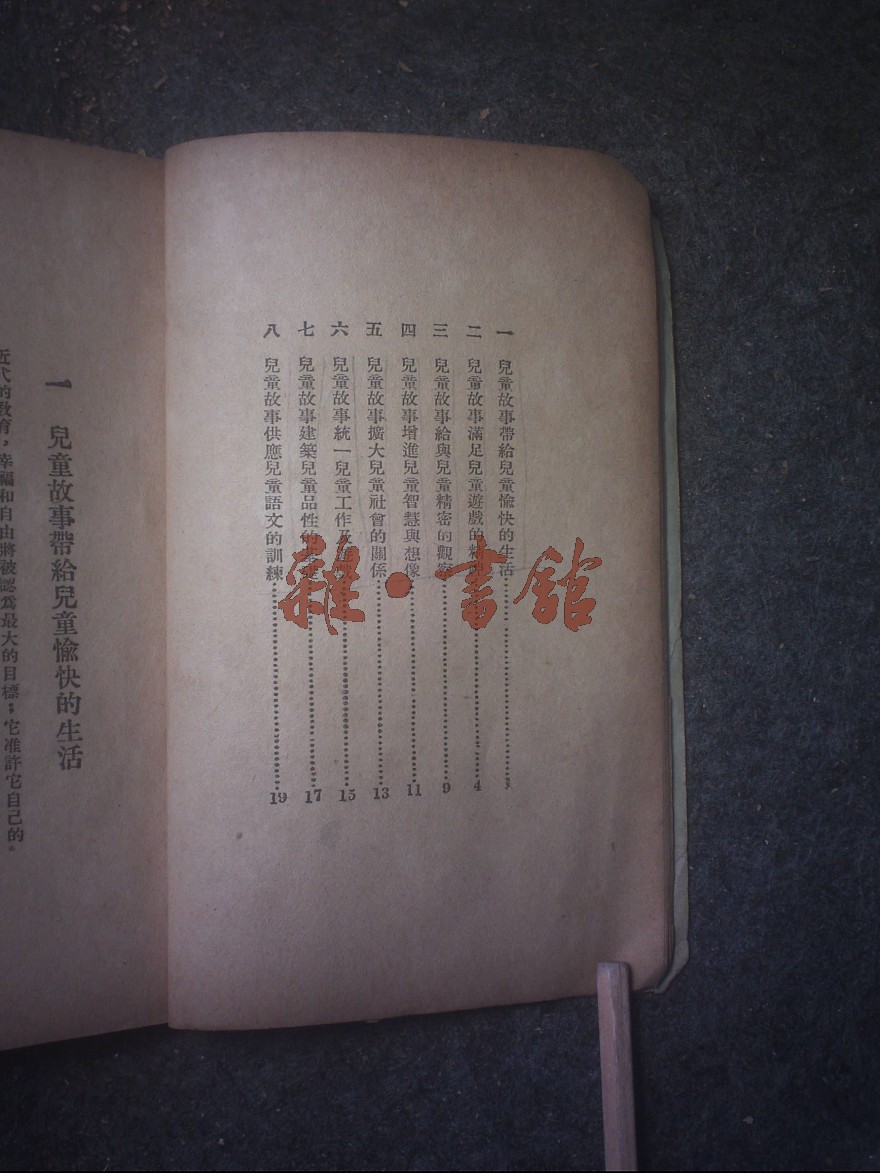 一 兒童故事帶給兒童愉快的生活
二 兒童故事滿足兒童遊戲的 4
三 兒童故事給與兒童精密的觀察 9
四 兒童故事增進兒童智慧與想像 11
五 兒童故事擴大兒童社會的關係 13
六 兒童故事統一兒童工作及 15
七 兒童故事建築兒童品性的 17
八 兒童故事供應兒童語文的訓練 19
雜·書館
一 兒童故事帶給兒童愉快的生活
近代的教育，幸福和自由將被認為最大的目標，它准許它自己的。